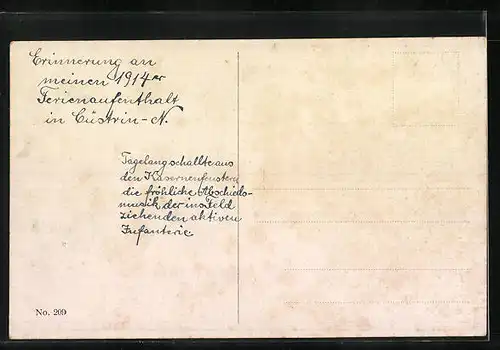 Erinnerung an
meinen 1914er
Ferienaufenthalt
in Cüstrin-N.
Tagelang schallte aus
den Kasernenfenstern
die fröhliche Abschieds-
musik der ins Feld
ziehenden aktiven
Infanterie
No. 209